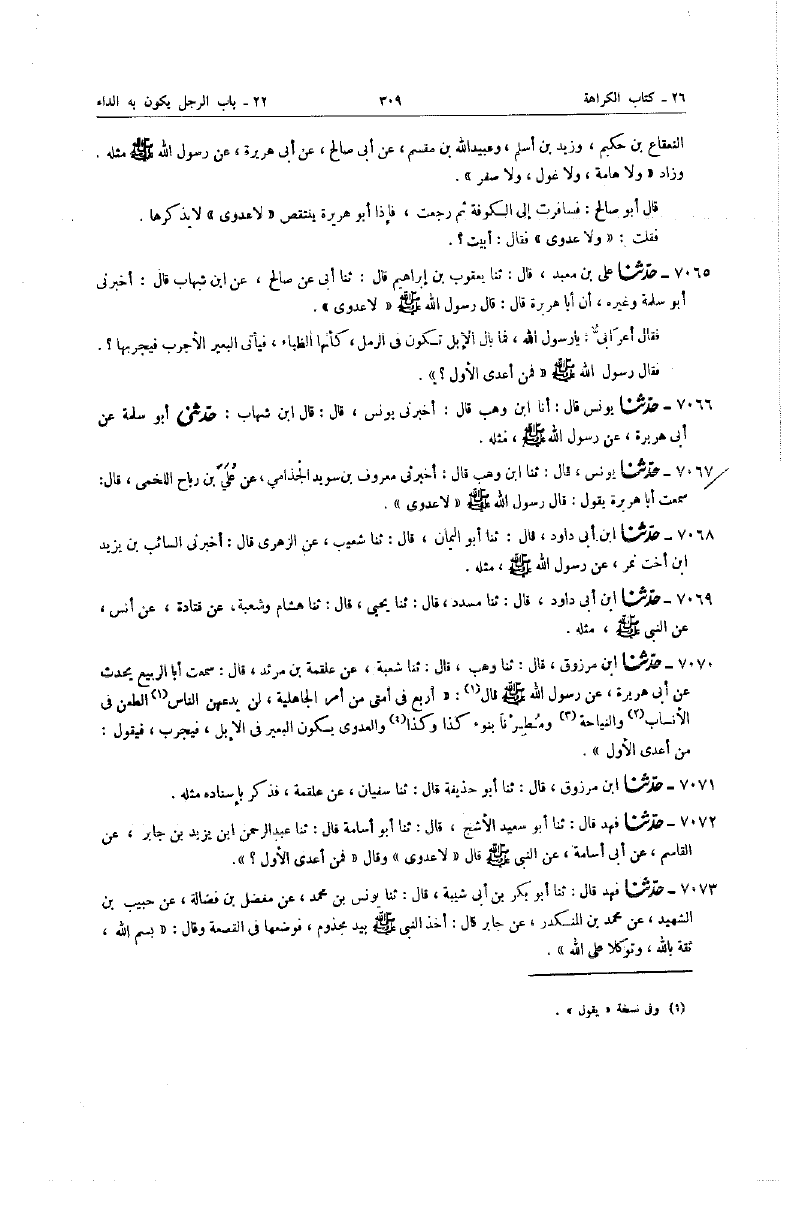 ٢٦ - كتاب الكراهة ٣٠٩ ٢٢ - باب الرجل يكون به الداء
القعقاع بن حكيم ، وزيد بن أسلم ، وعبيدالله بن مقسم ، عن أبى صالح ، عن أبى هريرة ، عن رسول الله ﷺ مثله .
وزاد « ولا هامة ، ولا غول ، ولا صفر » .
قال أبو صالح : فسافرت إلى الكوفة ثم رجعت ، فإذا أبو هريرة ينتقص « لاعدوى » لايذكرها .
فقلت : « ولا عدوى » فقال : أبيت ؟ .
٧٠٦٥ - حدّثنا على بن معبد ، قال : ثنا يعقوب بن إبراهيم قال : ثنا أبى عن صالح ، عن ابن شهاب قال : أخبرنى
أبو سلمة وغيره ، أن أبا هريرة قال : قال رسول الله ﷺ « لاعدوى » .
فقال أعرابىٌّ : يارسول الله ، فما بال الإبل تكون فى الرمل ، كأنها الظباء ، فيأتى البعير الأجرب فيجربها ؟ .
فقال رسول الله ﷺ « فمن أعدى الأول ؟ » .
٧٠٦٦ - حدّثنا يونس قال : أنا ابن وهب قال : أخبرنى يونس ، قال : قال ابن شهاب : حدّثنى أبو سلمة عن
أبى هريرة ، عن رسول الله ﷺ ، مثله .
٧٠٦٧ - حدّثنا يونس ، قال : ثنا ابن وهب قال : أخبرنى معروف بن سويد الجذامي ، عن عُلَيّ بن رباح اللخمى ، قال :
سمعت أبا هريرة يقول : قال رسول الله ﷺ « لاعدوى » .
٧٠٦٨ - حدّثنا ابن أبى داود ، قال : ثنا أبو اليمان ، قال : ثنا شعيب ، عن الزهرى قال : أخبرنى السائب بن يزيد
ابن أخت نمر ، عن رسول الله ﷺ ، مثله .
٧٠٦٩ - حدّثنا ابن أبى داود ، قال : ثنا مسدد ، قال : ثنا يحيى ، قال : ثنا هشام وشعبة ، عن قتادة ، عن أنس ،
عن النبى ﷺ ، مثله .
٧٠٧٠ - حدّثنا ابن مرزوق ، قال : ثنا وهب ، قال : ثنا شعبة ، عن علقمة بن مرثد ، قال : سمعت أبا الربيع يحدث
عن أبى هريرة ، عن رسول الله ﷺ قال(١) : « أربع فى أمتى من أمر الجاهلية ، لن يدعهن الناس(١) الطعن فى
الأنساب(٢) والنياحة(٣) ومُطِرْنا بنوء كذا وكذا(٤) والعدوى يكون البعير فى الإبل ، فيجرب ، فيقول :
من أعدى الأول » .
٧٠٧١ - حدّثنا ابن مرزوق ، قال : ثنا أبو حذيفة قال : ثنا سفيان ، عن علقمة ، فذكر بإسناده مثله .
٧٠٧٢ - حدّثنا فهد قال : ثنا أبو سعيد الأشج ، قال : ثنا أبو أسامة قال : ثنا عبدالرحمن ابن يزيد بن جابر ، عن
القاسم ، عن أبى أسامة ، عن النبى ﷺ قال « لاعدوى » وقال « فمن أعدى الأول ؟ » .
٧٠٧٣ - حدّثنا فهد قال : ثنا أبو بكر بن أبى شيبة ، قال : ثنا يونس بن محمد ، عن مفضل بن فضالة ، عن حبيب بن
الشهيد ، عن محمد بن المنكدر ، عن جابر قال : أخذ النبى ﷺ بيد مجذوم ، فوضعها فى القصعة وقال : « بسم الله ،
ثقة بالله ، وتوكلا على الله » .
(١) وفى نسخة « يقول » .